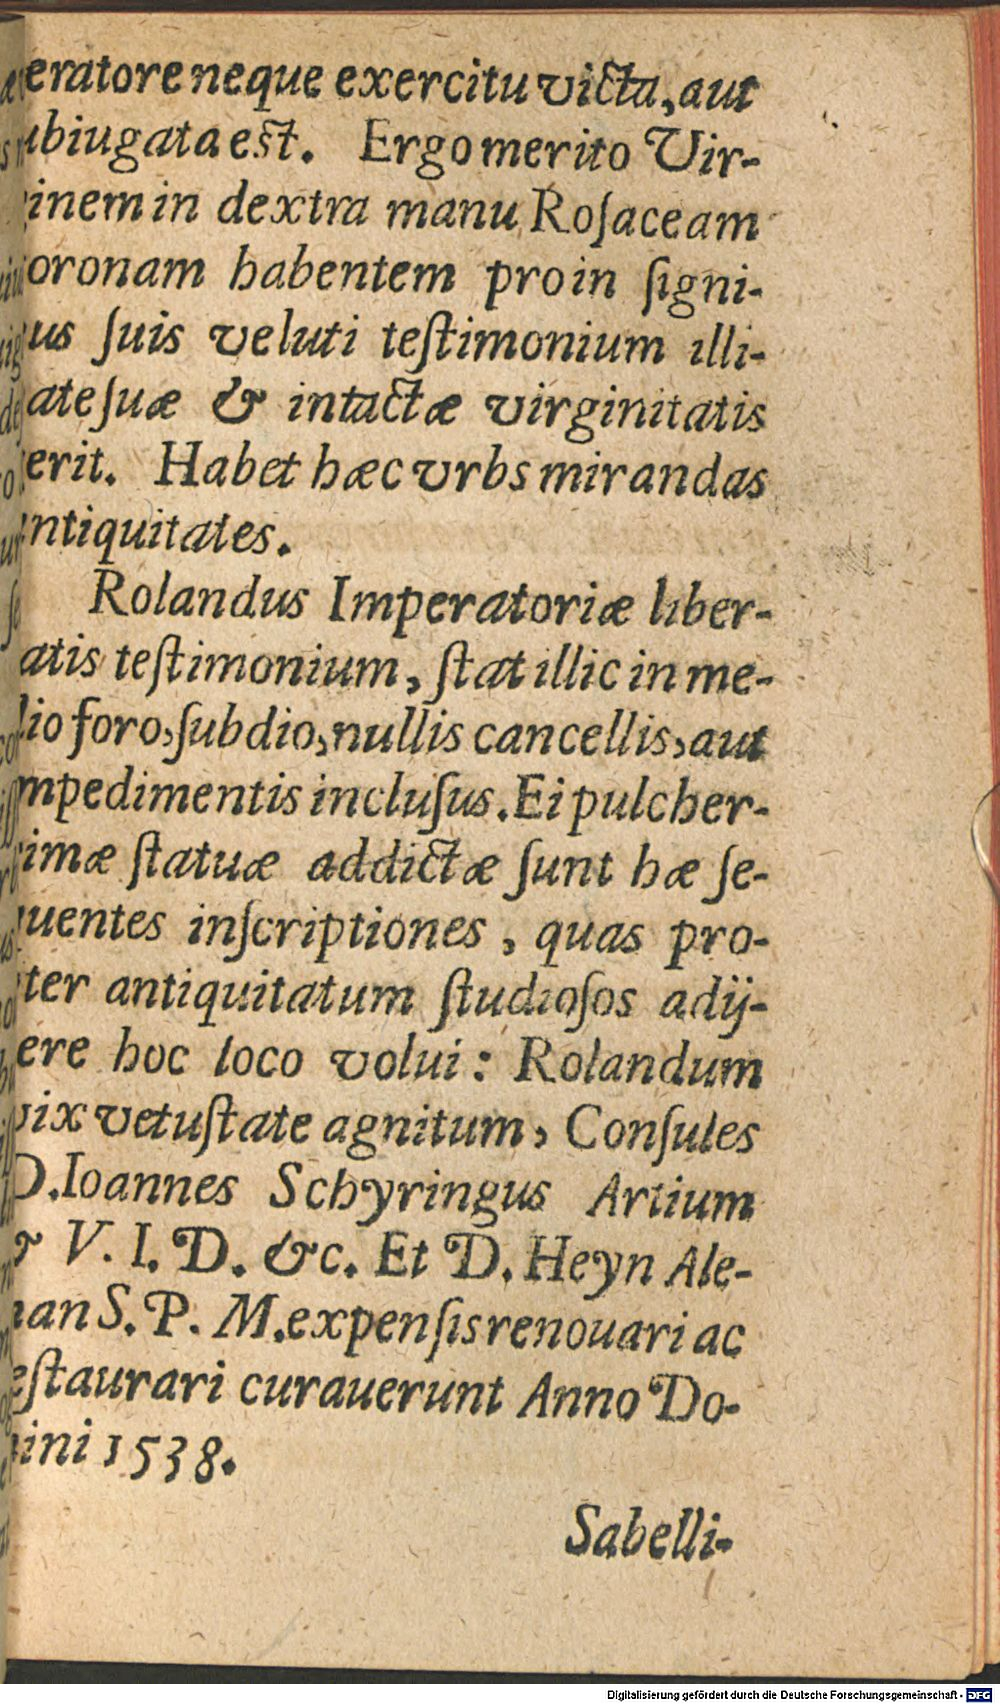 eratore neque exercitu victa, aut
ubiugata est. Ergo merito Vir-
ginem in dextra manu Roſaceam
oronam habentem proin ſigni-
us ſuis veluti teſtimonium illi-
ate ſuæ & intactæ virginitatis
gerit. Habet hæc vrbs mirandas
antiquitates.
Rolandus Imperatoriæ liber-
atis teſtimonium, ſtat illic in me-
dio foro, ſub dio, nullis cancellis, aut
impedimentis incluſus. Ei pulcher-
rimæ ſtatuæ addictæ ſunt hæ ſe-
quentes inſcriptiones, quas pro-
pter antiquitatum ſtudioſos adij-
cere hoc loco volui: Rolandum
vix vetuſtate agnitum, Conſules
D. Ioannes Schyringus Artium
& V. I. D. &c. Et D. Heyn Ale-
man S. P. M. expenſis renouari ac
reſtaurari curauerunt Anno Do-
mini 1538.
Sabelli-
Digitalisierung gefördert durch die Deutsche Forschungsgemeinschaft - DFG